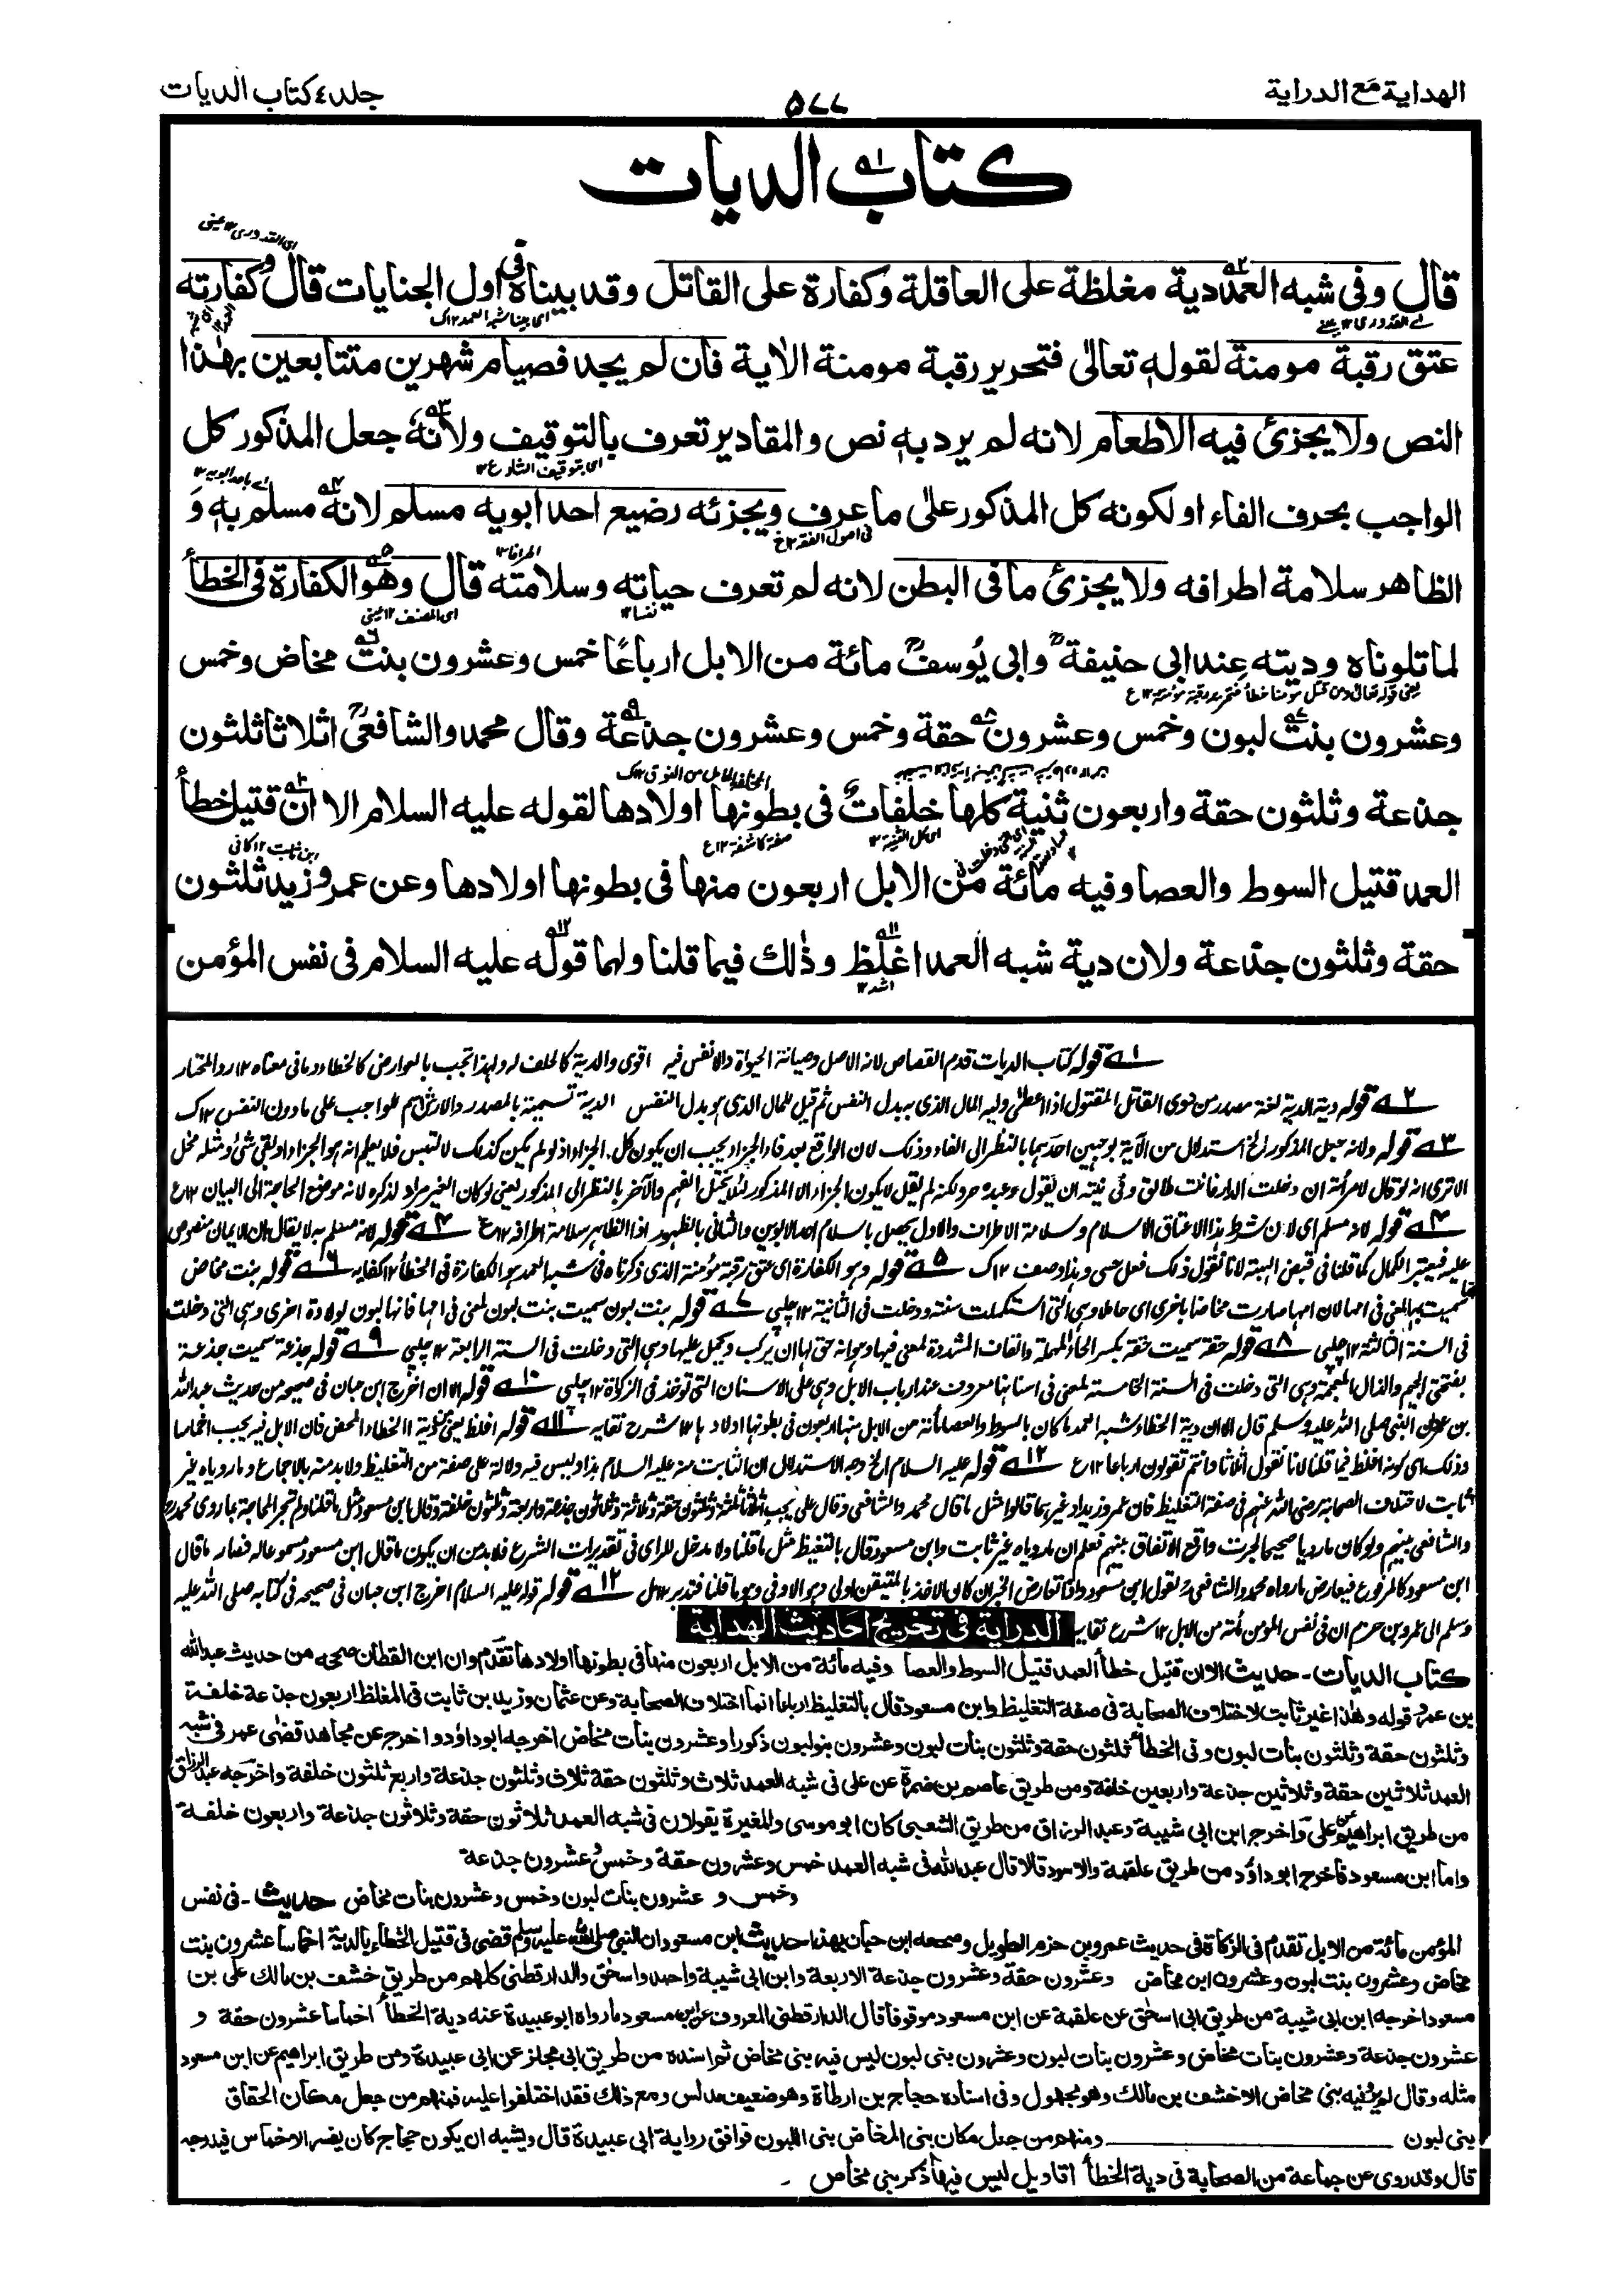 الهداية مع الدراية
۵۷۷
جلد ٤ كتاب الديات
كتاب الديات
قال وفى شبه العمد دية مغلظة على العاقلة وكفارة على القاتل وقد بيناه فى اول الجنايات قال وكفارته
عتق رقبة مومنة لقوله تعالى فتحرير رقبة مومنة الاية فان لم يجد فصيام شهرين متتابعين بهذا
النص ولا يجزئ فيه الاطعام لانه لم يرد به نص والمقادير تعرف بالتوقيف ولانه جعل المذكور كل
الواجب بحرف الفاء او لكونه كل المذكور على ما عرف ويجزئه رضيع احد ابويه مسلم لانه مسلم به و
الظاهر سلامة اطرافه ولا يجزئ ما فى البطن لانه لم تعرف حياته وسلامته قال وهو الكفارة فى الخطأ
لما تلوناه وديته عند ابى حنيفة وابى يوسف مائة من الابل ارباعا خمس وعشرون بنت مخاض وخمس
وعشرون بنت لبون وخمس وعشرون حقة وخمس وعشرون جذعة وقال محمد والشافعى اثلاثا ثلثون
جذعة وثلثون حقة واربعون ثنية كلها خلفات فى بطونها اولادها لقوله عليه السلام الا ان قتيل خطأ
العمد قتيل السوط والعصا وفيه مائة من الابل اربعون منها فى بطونها اولادها وعن عمر وزيد ثلثون
حقة وثلثون جذعة ولان دية شبه العمد اغلظ وذلك فيما قلنا ولهما قوله عليه السلام فى نفس المؤمن
١ قوله كتاب الديات قدم القصاص لانه الاصل وصيانة الحيوة والانفس فيه اقوى والدية كالخلف له ولهذا تجب بالعوارض كالخطاء وما فى معناه ١٢ رد المحتار
٢ قوله دية الدية لغة مصدر من ودى القاتل المقتول اذا اعطى وليه المال الذى به بدل النفس ثم قيل للمال الذى هو بدل النفس الدية تسمية بالمصدر والارش اسم للواجب على ما دون النفس ١٢ ك
٣ قوله ولانه جعل المذكور الخ استدلال من الآية بوجهين احدهما بالنظر الى الفاء وذلك لان الواقع بعد فاء الجزاء يجب ان يكون كل الجزاء اذ لو لم يكن كذلك لالتبس فلا يعلم انه هو الجزاء او بقى شئ ومثله مخل
الا ترى انه لو قال لامرأته ان دخلت الدار فانت طالق وفى نيته ان يقول وعبده حر ولكنه لم يقل لا يكون الجزاء الا المذكور لئلا يختل الفهم والآخر بالنظر الى المذكور يعنى لو كان الغير مراد لذكره لانه موضع الحاجة الى البيان ١٢ ع
٤ قوله لانه مسلم اى لان شرط هذا الاعتاق الاسلام وسلامة الاطراف والاول يحصل باسلام احد الابوين والثانى بالظهور اذ الظاهر سلامة اطرافه ١٢ ع ٤ قوله لانه مسلم به لا يقال ان الايمان منصوص
عليه فيعتبر الكمال كما قلنا فى قبض الهبة لانا نقول ذلك فعل حسى وهذا وصف ١٢ ك ٥ قوله وهو الكفارة اى عتق رقبة مؤمنة الذى ذكرناه فى شبه العمد هو الكفارة فى الخطأ ١٢ كفايه ٦ قوله بنت مخاض
سميت بها لمعنى فى امها لان امها صارت مخاضا باخرى اى حاملا وهى التى استكملت سنة ودخلت فى الثانية ١٢ چلپى ٧ قوله بنت لبون سميت بنت لبون لمعنى فى امها فانها لبون لولادة اخرى وهى التى دخلت
فى السنة الثالثة ١٢ چلپى ٨ قوله حقة سميت حقة بكسر الحاء المهملة والقاف المشددة لمعنى فيها وهو انه حق لها ان يركب ويحمل عليها وهى التى دخلت فى السنة الرابعة ١٢ چلپى ٩ قوله جذعة سميت جذعة
بفتحى الجيم والذال المعجمة وهى التى دخلت فى السنة الخامسة لمعنى فى اسنانها معروف عند ارباب الابل وهى على الاسنان التى توخذ فى الزكوة ١٢ چلپى ١٠ قوله الا ان اخرج ابن حبان فى صحيحه من حديث عبد الله
بن عمر ان النبى صلى الله عليه وسلم قال الا ان دية الخطاء شبه العمد ما كان بالسوط والعصا مأته من الابل منها اربعون فى بطونها اولادها ١٢ شرح نقايه ١١ قوله اغلظ يعنى من دية الخطاء المحض فان الابل فيه يجب اخماسا
وذلك اى كونه اغلظ فيما قلنا لانا نقول اثلاثا وانتم تقولون ارباعا ١٢ ع ١٢ قوله عليه السلام الخ وجه الاستدلال ان الثابت منه عليه السلام هذا وليس فيه دلالة على صفة من التغليظ ولا بد منه بالاجماع وما روياه غير
ثابت لاختلاف الصحابة رضى الله عنهم فى صفة التغليظ فان عمر وزيدا وغيرهما قالوا مثل ما قال محمد والشافعى وقال على يجب اثلاثا ثلثة وثلثون حقة وثلاثة وثلاثون جذعة واربعة وثلثون خلفة وقال ابن مسعود مثل ما قلنا ولم تجر المحاجة بما روى محمد
والشافعى بينهم ولو كان ما رويا صحيحا لجرت واقع الاتفاق بينهم فعلم ان ما روياه غير ثابت وابن مسعود قال بالتغليظ مثل ما قلنا ولا مدخل للراى فى تقديرات الشرع فلا بد من ان يكون ما قال ابن مسعود مسموعا له فصار ما قال
ابن مسعود كالمرفوع فيعارض ما رواه محمد والشافعى ونقول ابن مسعود واذا تعارض الخبران كان الاخذ بالمتيقن اولى وهو الادنى وهو ما قلنا فتدبر ١٢ ل ١٢ قوله قوله عليه السلام اخرج ابن حبان فى صحيحه فى كتابه صلى الله عليه
وسلم الى عمرو بن حزم ان فى نفس المؤمن مأته من الابل ١٢ شرح نقايه
الدراية فى تخريج احاديث الهداية
كتاب الديات - حديث الا ان قتيل خطأ العمد قتيل السوط والعصا وفيه مائة من الابل اربعون منها فى بطونها اولادها تقدم وان ابن القطان صححه من حديث عبد الله
بن عمرو قوله وهذا غير ثابت لاختلاف الصحابة فى صفة التغليظ وابن مسعود قال بالتغليظ ارباعا انما اختلاف الصحابة وعن عثمان وزيد بن ثابت فى المغلظ اربعون جذعة خلفة
وثلثون حقة وثلثون بنات لبون وفى الخطأ ثلثون حقة وثلثون بنات لبون وعشرون بنو لبون ذكورا وعشرون بنات مخاض اخرجه ابوداؤد واخرج عن مجاهد قضى عمر فى شبه
العمد ثلاثين حقة وثلاثين جذعة واربعين خلفة ومن طريق عاصم بن ضمرة عن على فى شبه العمد ثلاث وثلثون حقة ثلاث وثلثون جذعة واربع ثلثون خلفة واخرجه عبد الرزاق
من طريق ابراهيم عن على واخرج ابن ابى شيبة وعبد الرزاق من طريق الشعبى كان ابو موسى والمغيرة يقولان فى شبه العمد ثلاثون حقة وثلاثون جذعة واربعون خلفة
واما ابن مسعود فاخرج ابوداؤد من طريق علقمة والاسود قالا قال عبد الله فى شبه العمد خمس وعشرون حقة وخمس وعشرون جذعة
وخمس وعشرون بنات لبون وخمس وعشرون بنات مخاض حديث - فى نفس
المؤمن مائة من الابل تقدم فى الزكاة فى حديث عمرو بن حزم الطويل وصححه ابن حبان بهذا حديث ابن مسعود ان النبى صلى الله عليه وسلم قضى فى قتيل الخطاء بالدية اخماسا عشرون بنت
مخاض وعشرون بنت لبون وعشرون ابن مخاض وعشرون حقة وعشرون جذعة الاربعة وابن ابى شيبة واحمد واسحق والدارقطنى كلهم من طريق خشف بن مالك عن ابن
مسعود اخرجه ابن ابى شيبة من طريق ابى اسحق عن علقمة عن ابن مسعود موقوفا قال الدارقطنى المعروف عن ابن مسعود ما رواه ابو عبيدة عنه دية الخطأ اخماسا عشرون حقة و
عشرون جذعة وعشرون بنات مخاض وعشرون بنات لبون وعشرون بنى لبون ليس فيه بنى مخاض ثم اسنده من طريق ابى مجلز عن ابى عبيدة ومن طريق ابراهيم عن ابن مسعود
مثله وقال لم يرو فيه بنى مخاض الا خشف بن مالك وهو مجهول وفى اسناده حجاج بن ارطاة وهو ضعيف مدلس ومع ذلك فقد اختلفوا عليه فمنهم من جعل مكان الحقاق
بنى لبون ومنهم من جعل مكان بنى المخاض بنى اللبون فوافق رواية ابى عبيدة قال ويشبه ان يكون حجاج كان يفسر الاخماس فيدرجه
قال وقد روى عن جماعة من الصحابة فى دية الخطأ اقاويل ليس فيها ذكر بنى مخاض -